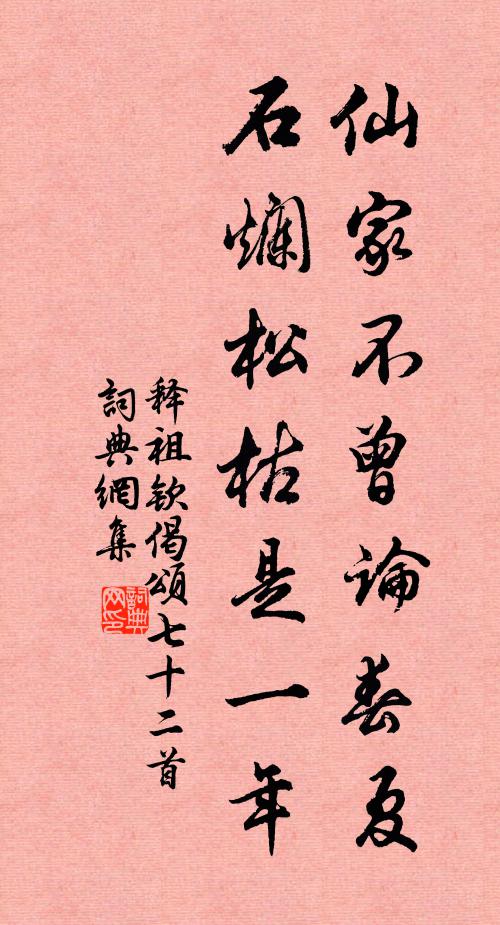 仙家不曾論春夏
石爛松枯是一年
释祖欽偈頌七十二首
詞典網集
詞典网印